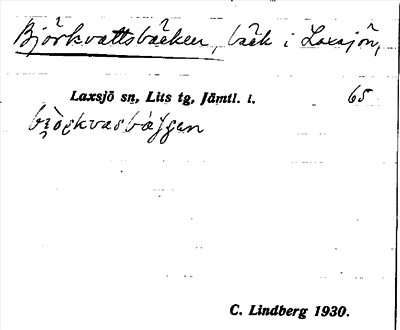 Björkvattsbäcken, bäck i Laxsjön,
Laxsjö sn, Lits tg, Jämtl. l. 65
C. Lindberg 1930.